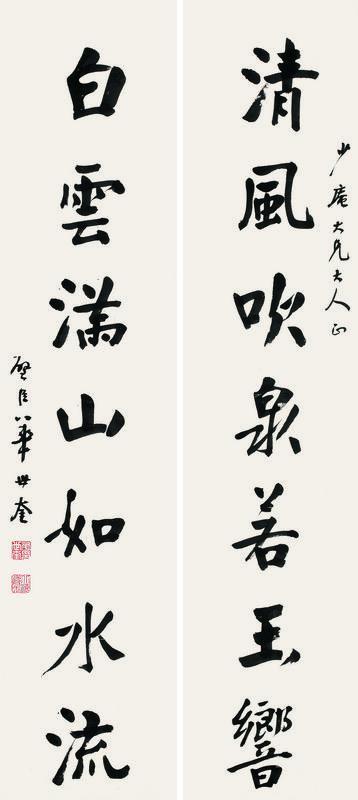 少庵大兄大人正
清風吹泉若玉響
白雲滿山如水流
華世奎